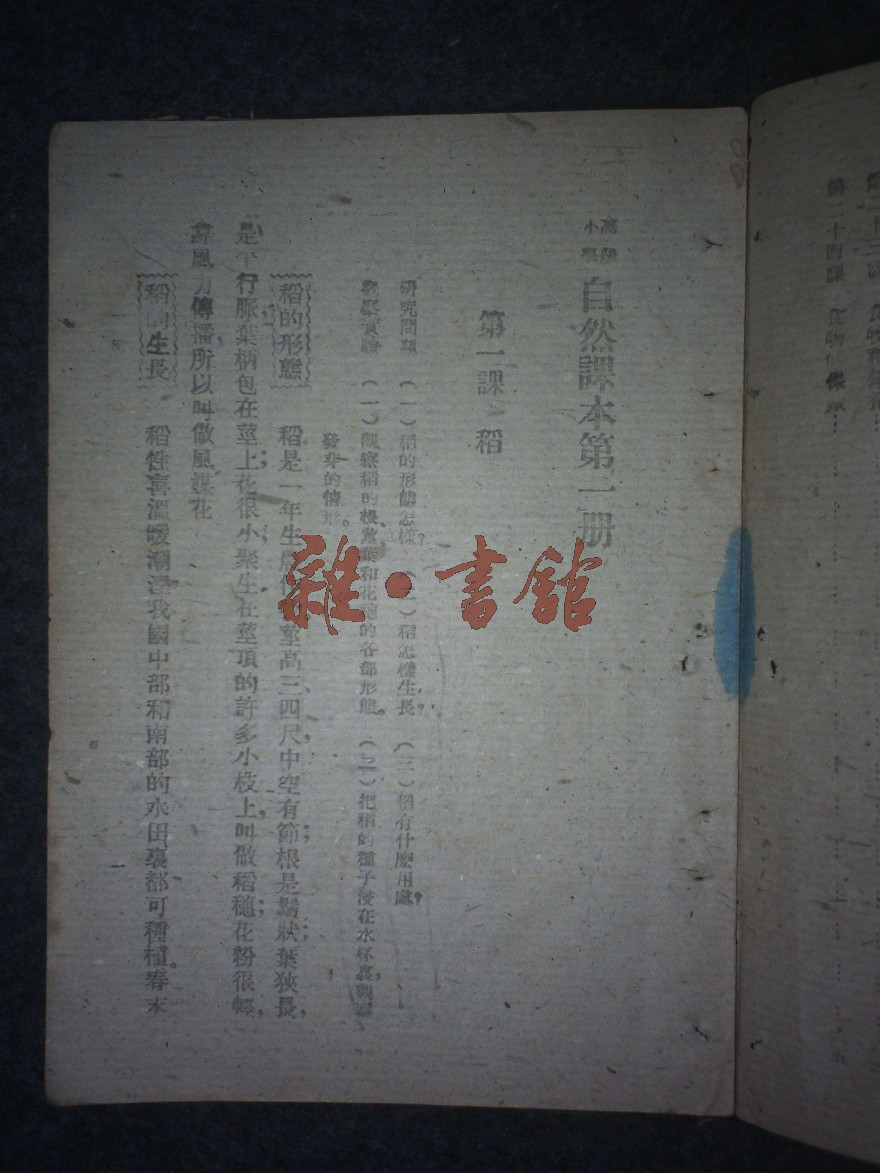 高級小學 自然課本第二册
第一課 稻
研究問題 (一)稻的形態怎樣?(二)稻怎樣生長?(三)稻有什麽用處?
觀察實驗 (一)觀察稻的根莖葉和花穗的各部形態。(二)把稻的種子浸在水杯裏,觀察
發芽的情形。
稻的形態 稻是一年生 莖高三四尺,中空有節;根是鬚狀;葉狹長,
是平行脈,葉柄包在莖上;花很小,聚生在莖頂的許多小枝上,叫做稻穗;花粉很輕,
靠風力傳播,所以叫做風媒花
稻的生長 稻性喜溫暖潮濕,我國中部和南部的水田裏都可種植。春末
一
第二十四課 食物
雜·書館